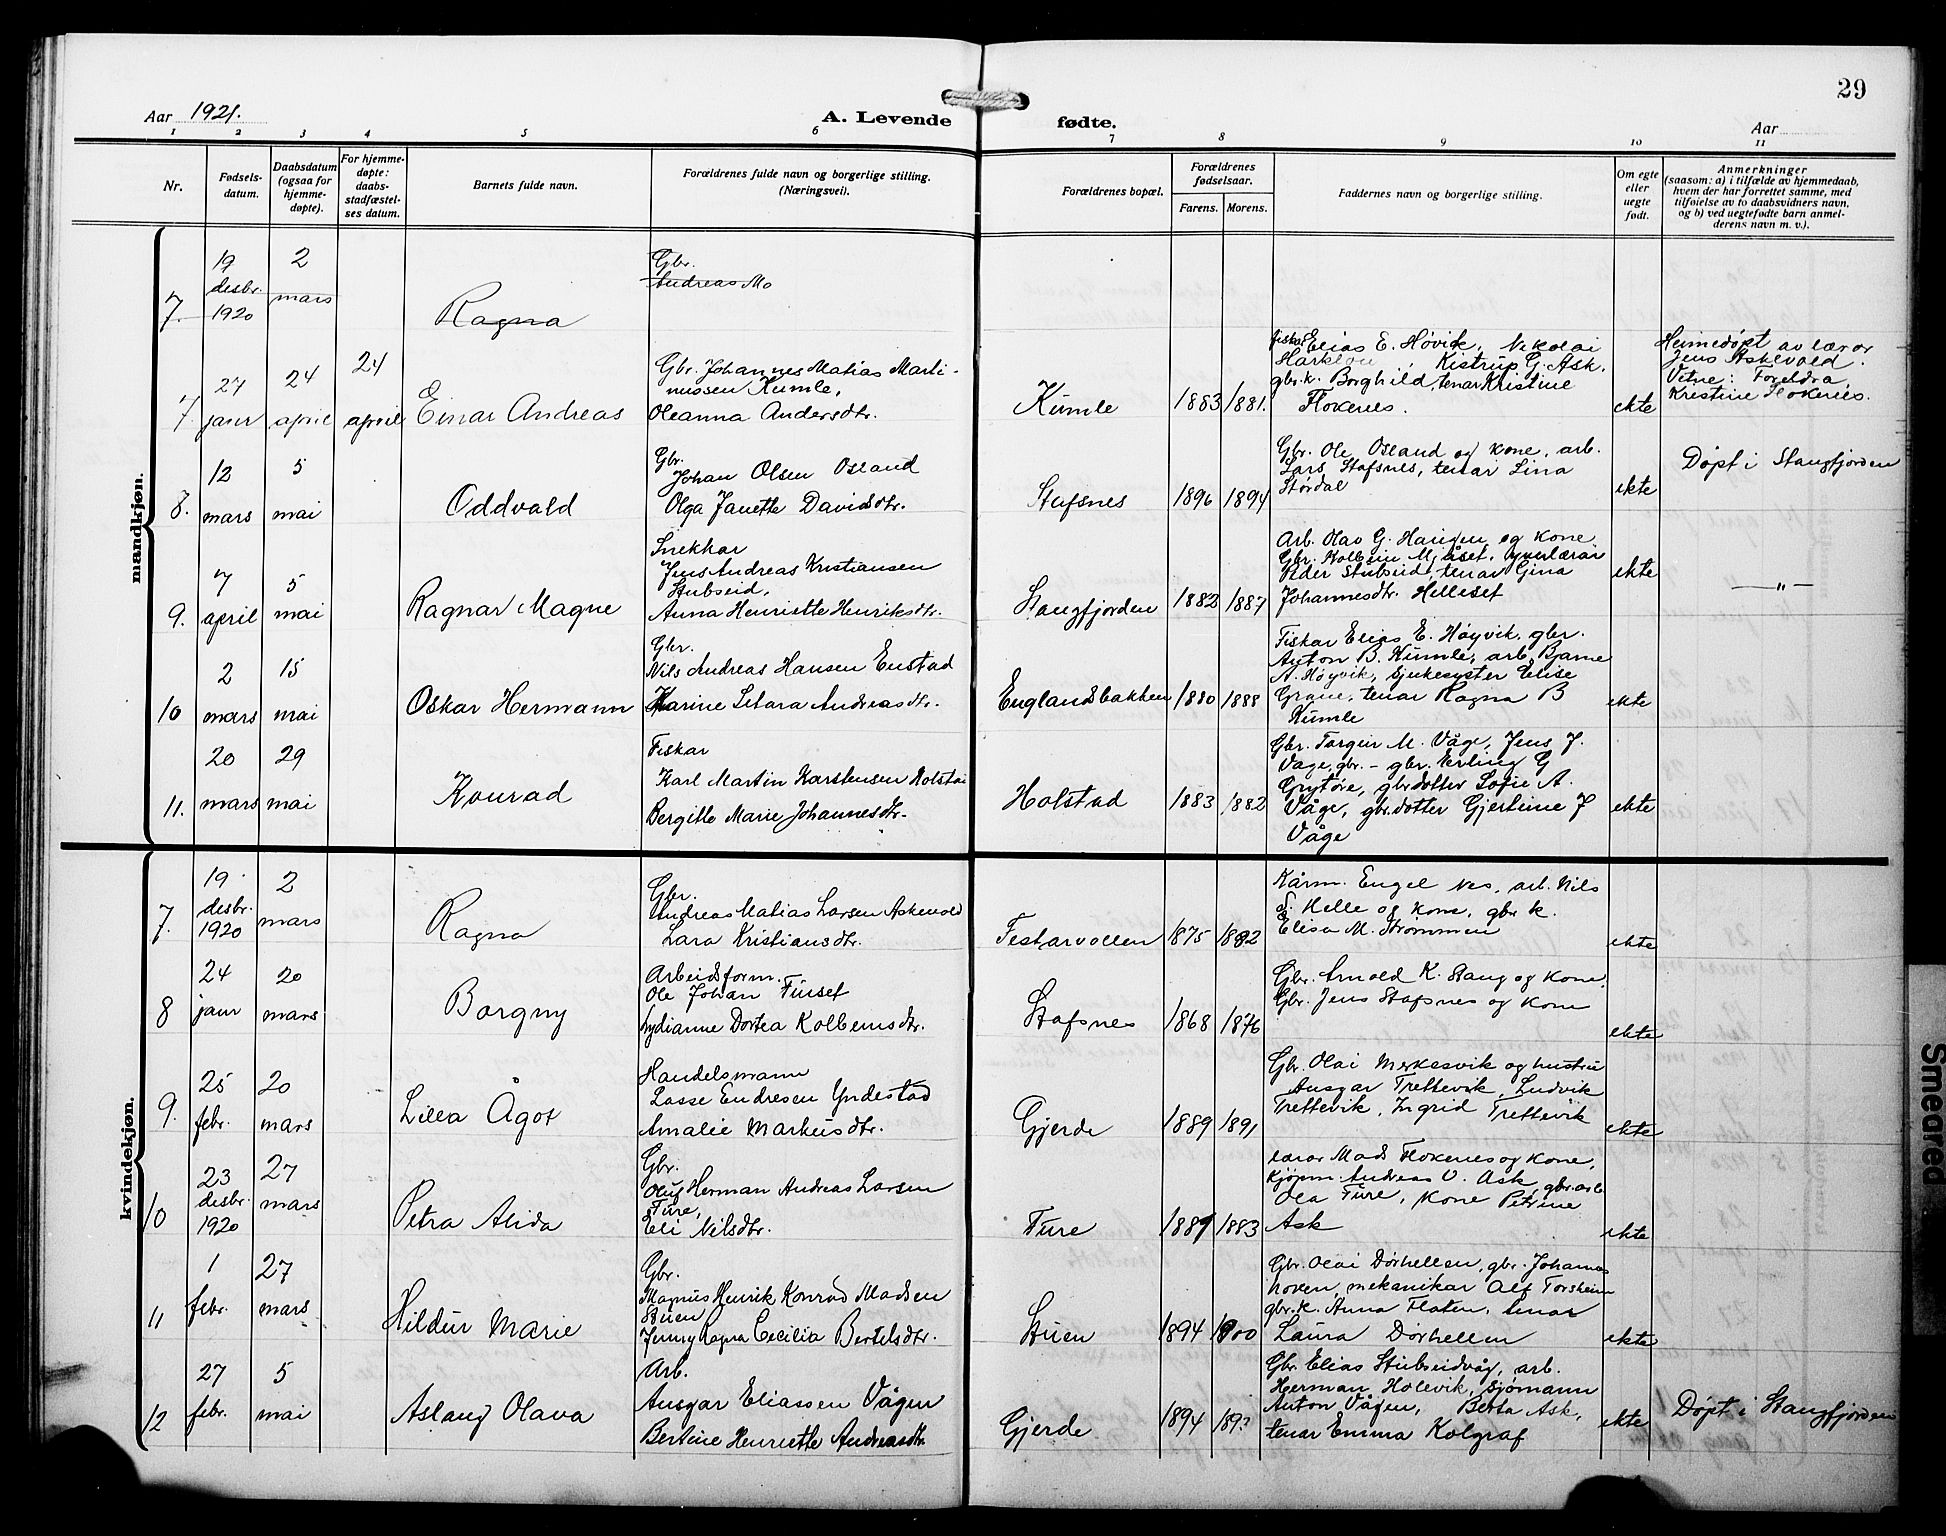 29
Aar 1921.
A. Levende fødte.
Aar
1 2 3 4 5 6 7 8 9 10 11
Nr.
Fødsels-
datum.
Daabsdatum
(ogsaa for
hjemme-
døpte).
For hjemme-
døpte:
daabs-
stadfæstel-
ses datum.
Barnets fulde navn.
Forældrenes fulde navn og borgerlige stilling.
(Næringsvei).
Forældrenes bopæl.
Forældrenes
fødselsaar.
Farens. Morens.
Faddernes navn og borgerlige stilling.
Om egte
eller
uegte
født.
Anmerkninger
(saasom: a) i tilfælde av hjemmedaab,
hvem der har forrettet samme, med
tilføielse av to daabsvidners navn,
og b) ved uegtefødte barn anmel-
derens navn m. v.).
mandkjøn.
7.
19
desbr.
1920
2
mars
Ragna
Gbr.
Andreas Mo
7.
27
janr
24
april
24
april
Einar Andreas
Gbr. Johannes Matias Marti-
nussen Kumle,
Oleanna Andersdtr.
Kumle
1883
1881.
fiskar Elias E. Høvik, Nikolai
Kistrup G. Ask.
gbr.k. Borghild, tenar Kristine
Flokenes.
ekte
Heimedøpt av lærar
Jens Askevold.
Vitne: Foreldra,
Kristine Flokenes.
8.
12
mars
5
mai
Oddvald
Gbr.
Johan Olsen Osland
Olga Janette Davidsdtr.
Stafsnes
1896
1894
Gbr. Ole Osland og kone, arb.
Lars Stafsnes, tenar Lina
Størdal
ekte
Døpt i Stangfjorden
9.
7
april
5
mai
Ragnar Magne
Snekkar
Jens Andreas Kristiansen
Stubseid,
Anna Henriette Henriksdtr.
Stangfjorden
1882
1887
Arb. Olav G. Haugen og kone
Gbr. Kolbein Mjåset, yverlærar
Peder Stubseid, tenar Gina
Johannesdtr. Helleset
ekte
—"—
10
2
mars
15
mai
Oskar Hermann
Gbr.
Nils Andreas Hansen Enstad
Karine Andreasdtr.
Englandsbakken
1880
1888
Fiskar Elias E. Høyvik, gbr.
Anton B. Kumle, arb. Bjarne
A. Høyvik, Sjukesyster Elise
Grane, tenar Ragna B
Kumle
ekte
11.
20
mars
29
mai
Konrad
Fiskar
Karl Martin Karstensen Holstad
Bergitte Marie Johannesdtr.
Holstad
1883
1882
Gbr. Torgeir M. Våge, Jens J.
Våge, gbr. – gbr. Erling G
Grytøre, gbr.dotter Sofie A.
Våge, gbr.dotter Gjertine J
Våge
ekte
kvindekjøn.
7.
19
desbr.
1920
2
mars
Ragna
Gbr.
Andreas Matias Larsen Askevold
Lara Kristiansdtr.
Festarvollen
1875
1882
Kårm. Engel Nes, arb. Nils
S. Helle og kone, gbr k.
Elisa M. Strømmen
ekte
8
24
janr
20
mars
Borgny
Arbeidsform.
Ole Johan Furset
Lydianne Dortea Kolbeinsdtr.
Stafsnes
1868
1876
Gbr. Arnold K. Stang og kone,
Gbr. Jens Stafsnes og kone
ekte
9.
25
febr.
20
mars
Lilla Ågot
Handelsmann
Lasse Endresen Yndestad
Amalie Markusdtr.
Gjerde
1889
1891
Gbr. Olai Merkesvik og hustru
Ansgar Trettevik, Ludvik
Trettevik, Ingrid Trettevik
ekte
10
23
desbr.
1920
27
mars
Petra Alida
Gbr.
Oluf Herman Andreas Larsen
Fure,
Eli Nilsdtr.
Fure
1889
1883
lærar Mads Flokenes og kone,
Kjøpm. Andreas O. Ask, gbr.arb.
Ola Fure, kone Petrine
Ask
ekte
11
1
febr.
27
mars
Hildur Marie
Gbr.
Magnus Henrik Konrad Madsen
Stuen
Jenny Ragna Cecilia Bertelsdtr.
Stuen
1894
1900
Gbr. Olai Dørhellen, gbr. Johannes
Hoven, mekanikar Alf Forsheim
gbr.k. Anna Flaten, tenar
Laura Dørhellen
ekte
12
27
febr.
5
mai
Aslaug Olava
Arb.
Ansgar Eliassen Vågen
Bertine Henriette Andreasdtr.
Gjerde
1894
189?
Gbr. Elias Stubseidvåg, arb.
Herman Holevik, sjømann
Anton Vågen, Berta Ask,
tenar Emma Kolgraf
ekte
Døpt i Stangfjorden
Smeared